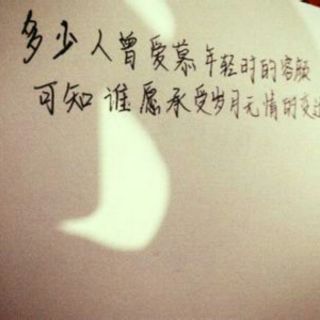 多少人曾爱慕年轻时的容颜
可知谁愿承受岁月无情的变